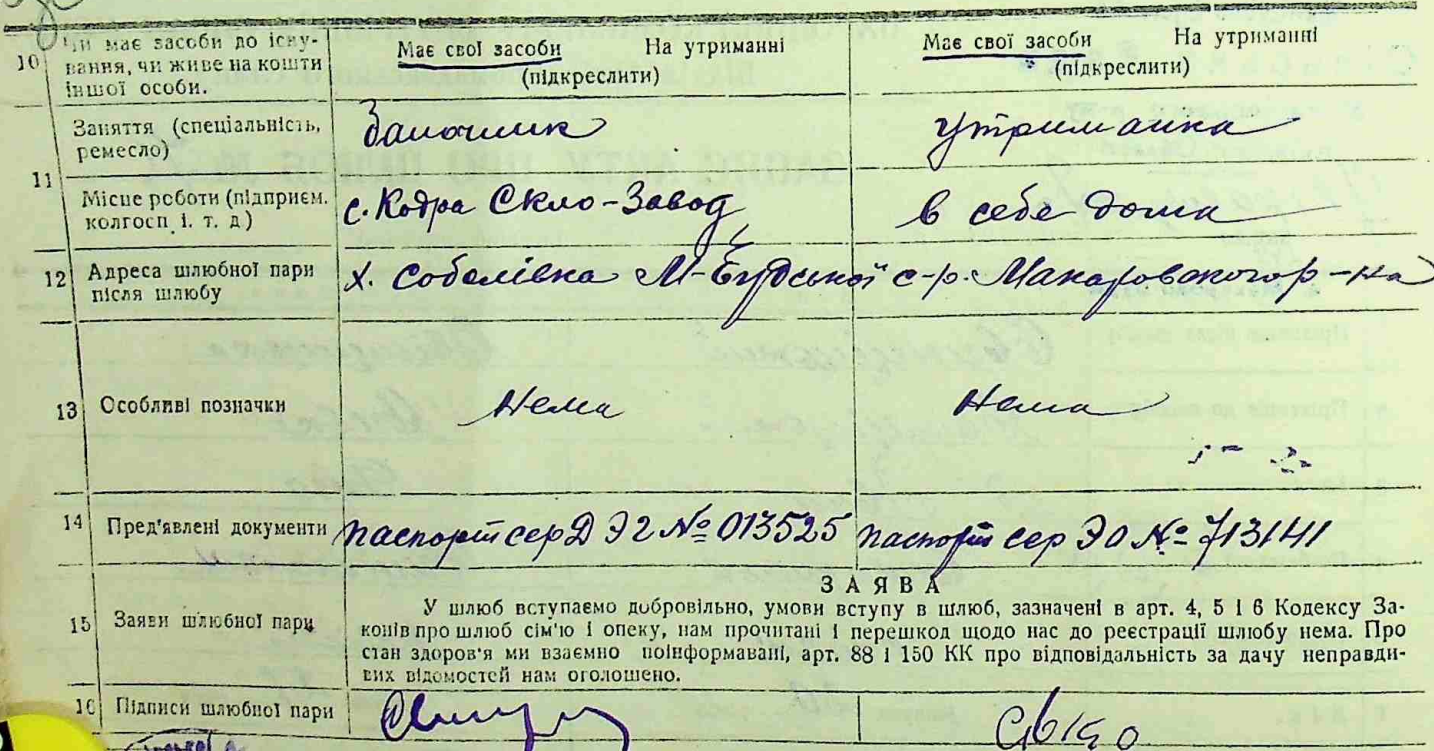 10 Чи має засоби до існу-
вання, чи живе на кошти
іншої особи.
Має свої засоби На утриманні
(підкреслити)
Має свої засоби На утриманні
(підкреслити)
11
Заняття (спеціальність,
ремесло)
утриманка
Місце роботи (підприєм.
колгосп і. т. д)
с. Кодра Скло-Завод
в себе дома
12 Адреса шлюбної пари
після шлюбу
х. Собелівка М-Будської с-р. Макаровского р-на
13 Особливі позначки
Нема
Нема
14 Пред'явлені документи
паспорт сер Д Э2 № 013525
паспорт сер ЭО № 713141
15 Заяви шлюбної пари
ЗАЯВА
У шлюб вступаємо добровільно, умови вступу в шлюб, зазначені в арт. 4, 5 і 6 Кодексу За-
конів про шлюб сім'ю і опеку, нам прочитані і перешкод щодо нас до реєстрації шлюбу нема. Про
стан здоров'я ми взаємно поінформавані, арт. 88 і 150 КК про відповідальність за дачу неправди-
вих відомостей нам оголошено.
16 Підписи шлюбної пари